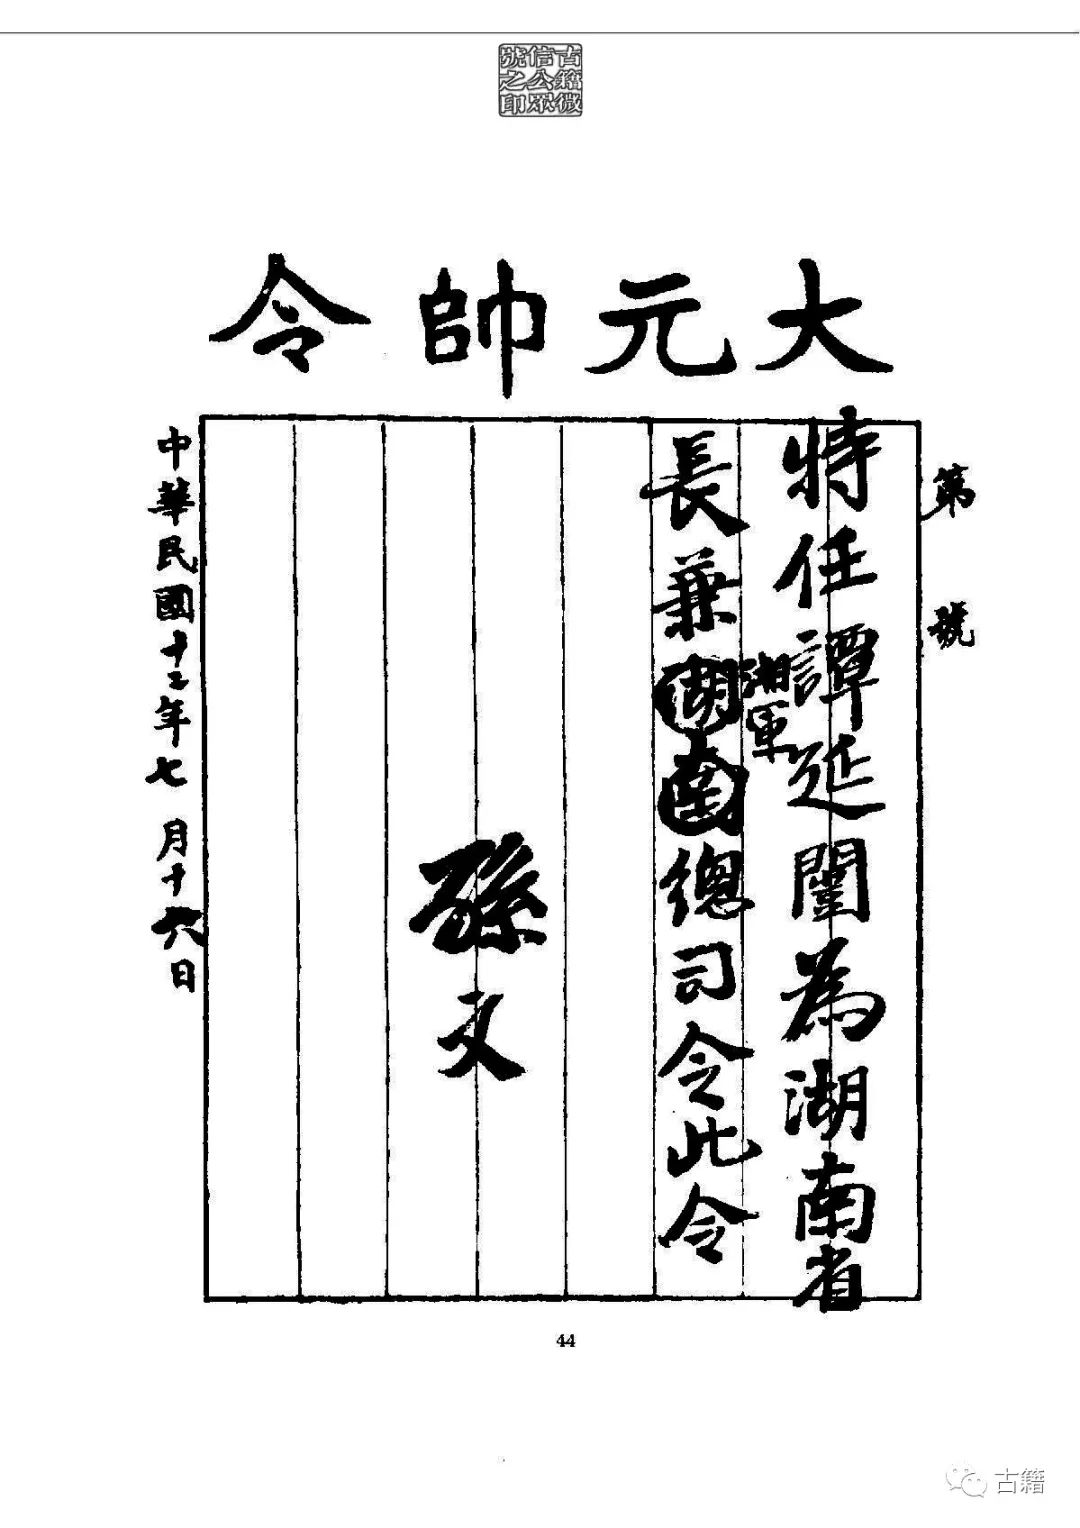 古籍微
信公眾
號之印
大元帥令
第 號
特任譚延闓為湖南省
長兼湖南總司令此令
湘軍
孫文
中華民國十二年七月十六日
44
古籍